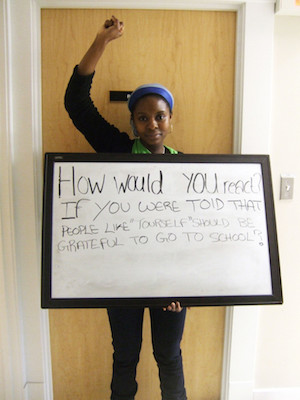 How would YOU react?
IF YOU WERE TOLD THAT
PEOPLE LIKE "YOURSELF" SHOULD BE
GRATEFUL TO GO TO SCHOOL"?